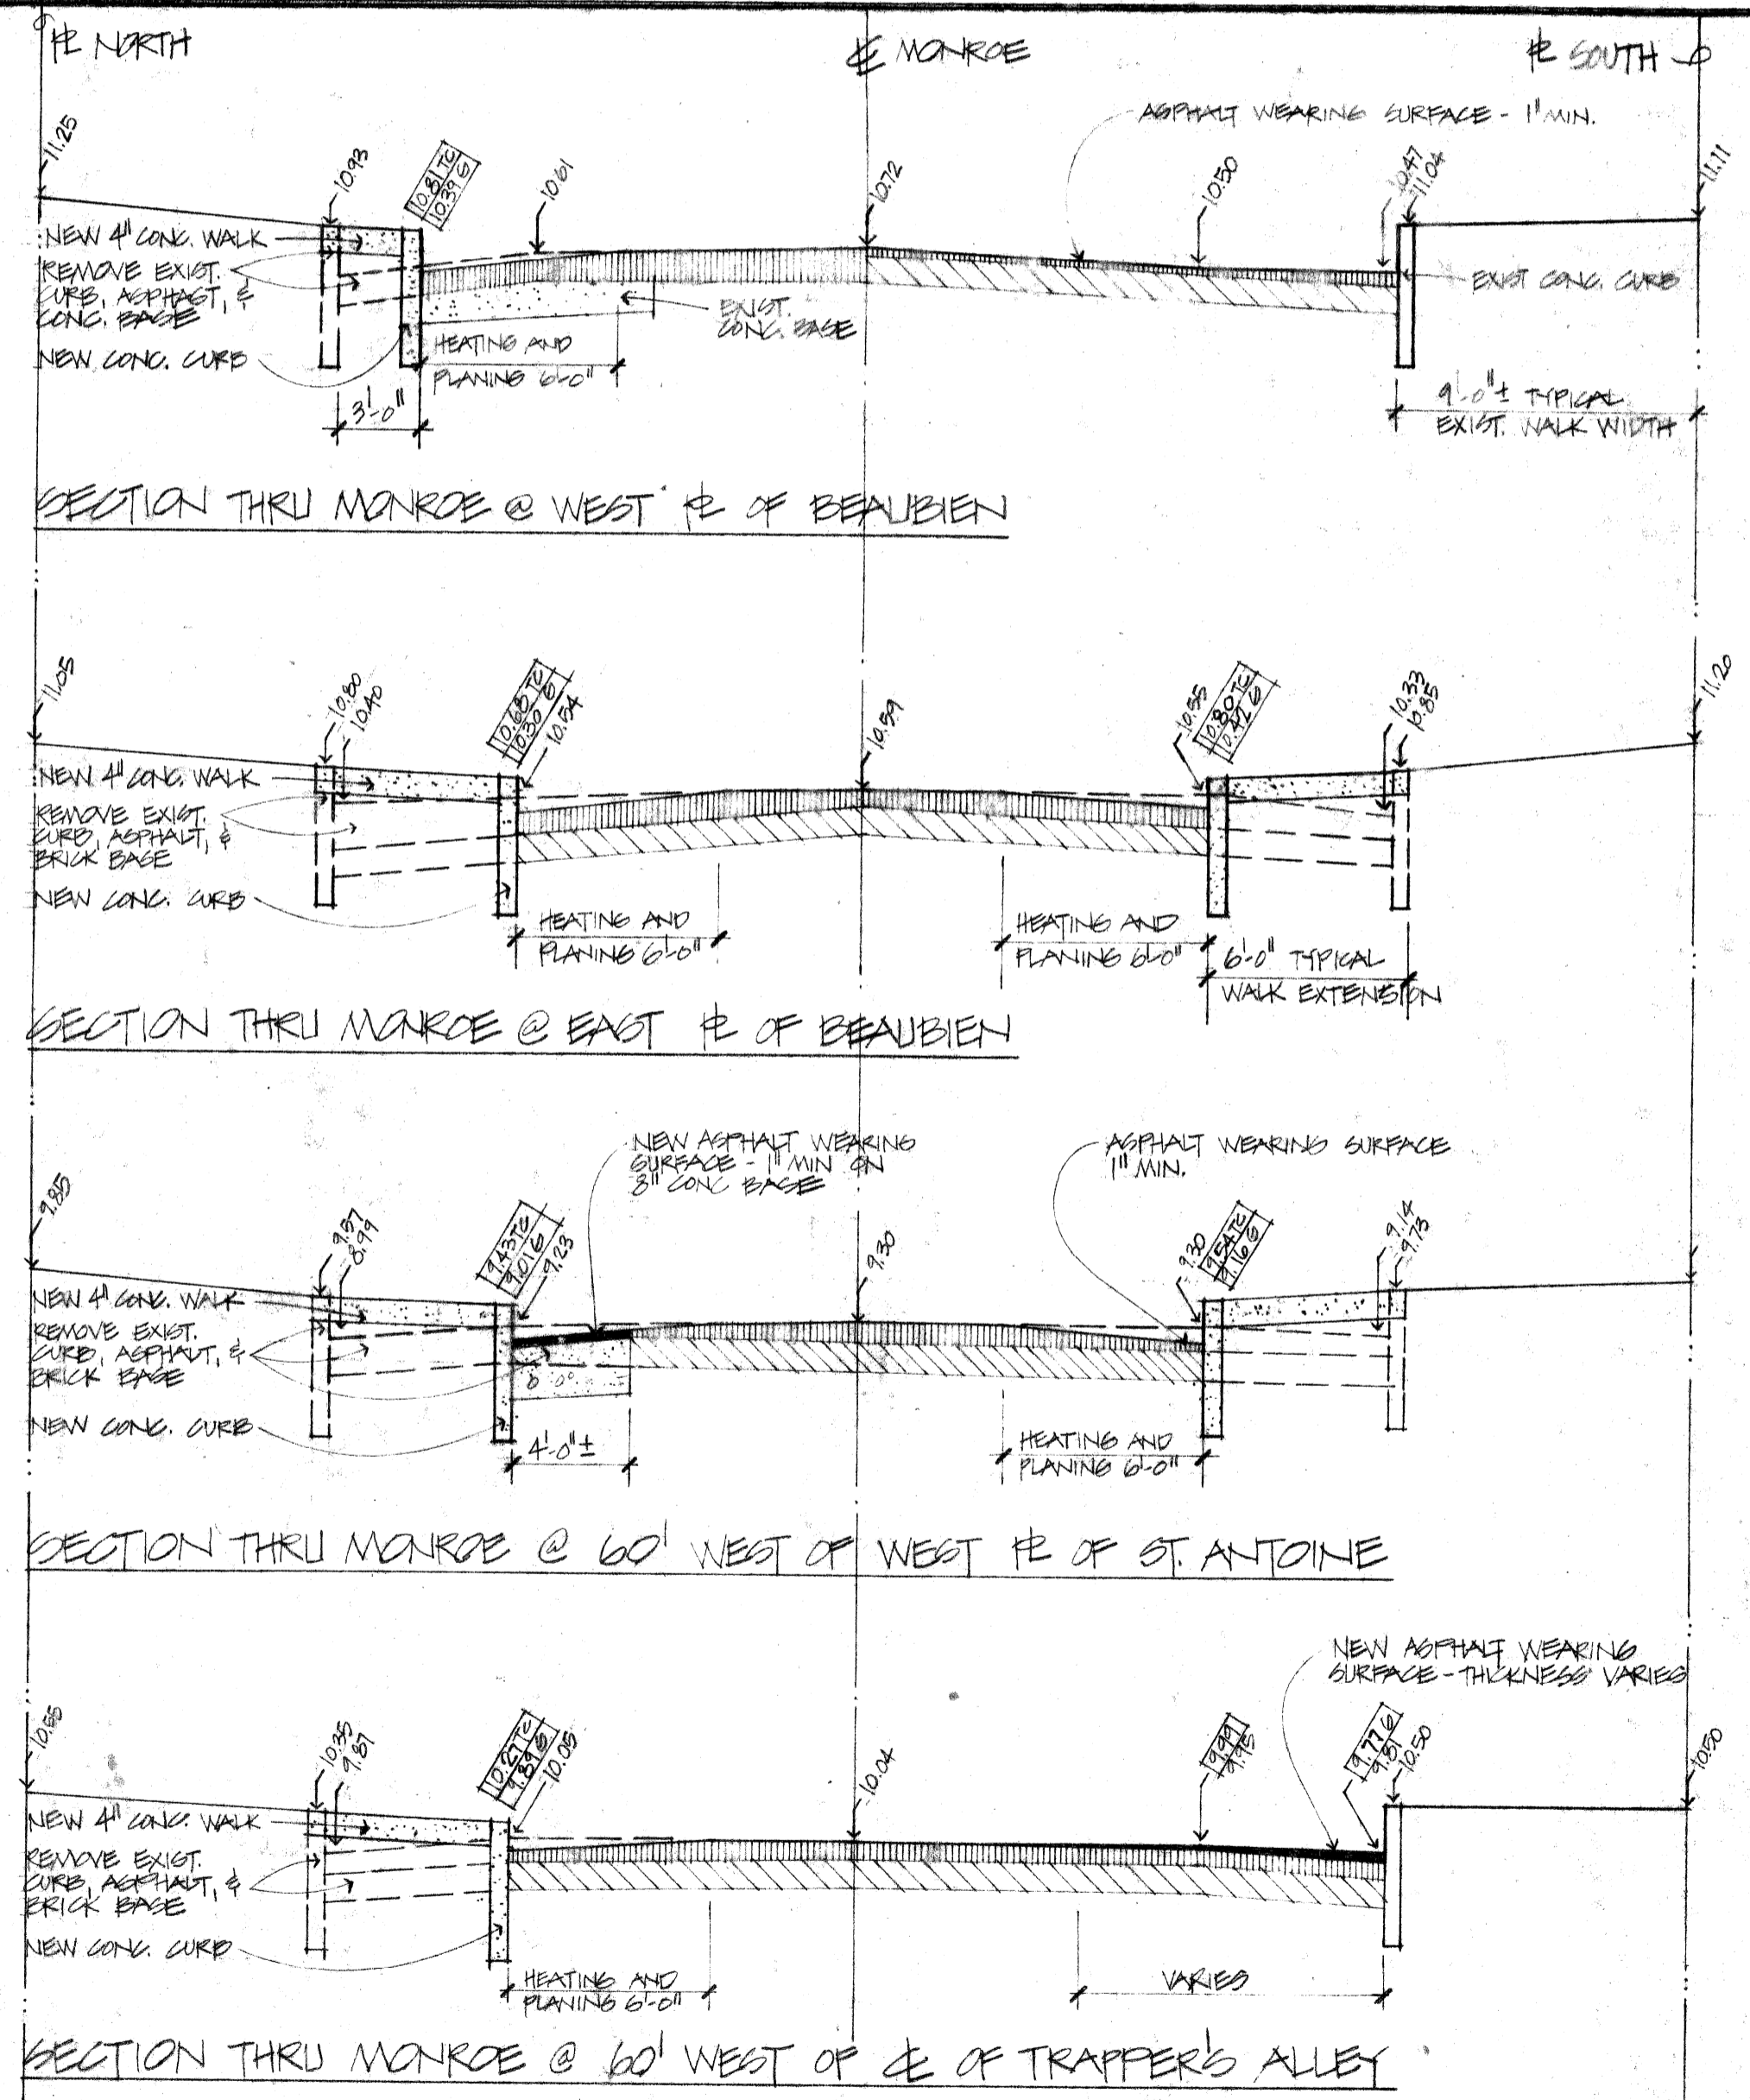 ℄ MONROE
⅊ NORTH
⅊ SOUTH
ASPHALT WEARING SURFACE - 1" MIN.
11.25
10.93
10.81 TC
10.39 G
10.61
10.72
10.50
10.47
11.04
11.11
NEW 4" CONC. WALK
REMOVE EXIST.
CURB, ASPHALT, &
CONC. BASE
NEW CONC. CURB
EXIST.
CONC. BASE
EXIST CONC. CURB
HEATING AND
PLANING 6'-0"
3'-0"
9'-0"± TYPICAL
EXIST. WALK WIDTH
SECTION THRU MONROE @ WEST ⅊ OF BEAUBIEN
11.05
10.80
10.40
10.68 TC
10.30 G
10.54
10.59
10.55
10.80 TC
10.42 G
10.33
10.85
11.20
NEW 4" CONC. WALK
REMOVE EXIST.
CURB, ASPHALT, &
BRICK BASE
NEW CONC. CURB
HEATING AND
PLANING 6'-0"
HEATING AND
PLANING 6'-0"
6'-0" TYPICAL
WALK EXTENSION
SECTION THRU MONROE @ EAST ⅊ OF BEAUBIEN
NEW ASPHALT WEARING
SURFACE - 1" MIN ON
8" CONC BASE
ASPHALT WEARING SURFACE
1" MIN.
9.85
9.57
8.99
9.43 TC
9.01 G
9.23
9.30
9.30
9.54 TC
9.16 G
9.14
9.73
NEW 4" CONC. WALK
REMOVE EXIST.
CURB, ASPHALT, &
BRICK BASE
NEW CONC. CURB
4'-0"±
HEATING AND
PLANING 6'-0"
SECTION THRU MONROE @ 60' WEST OF WEST ⅊ OF ST. ANTOINE
NEW ASPHALT WEARING
SURFACE - THICKNESS VARIES
10.55
10.35
9.87
10.27 TC
9.89 G
10.05
10.04
9.99
9.95
9.77 G
9.81
10.50
10.50
NEW 4" CONC. WALK
REMOVE EXIST.
CURB, ASPHALT, &
BRICK BASE
NEW CONC. CURB
HEATING AND
PLANING 6'-0"
VARIES
SECTION THRU MONROE @ 60' WEST OF ℄ OF TRAPPER'S ALLEY